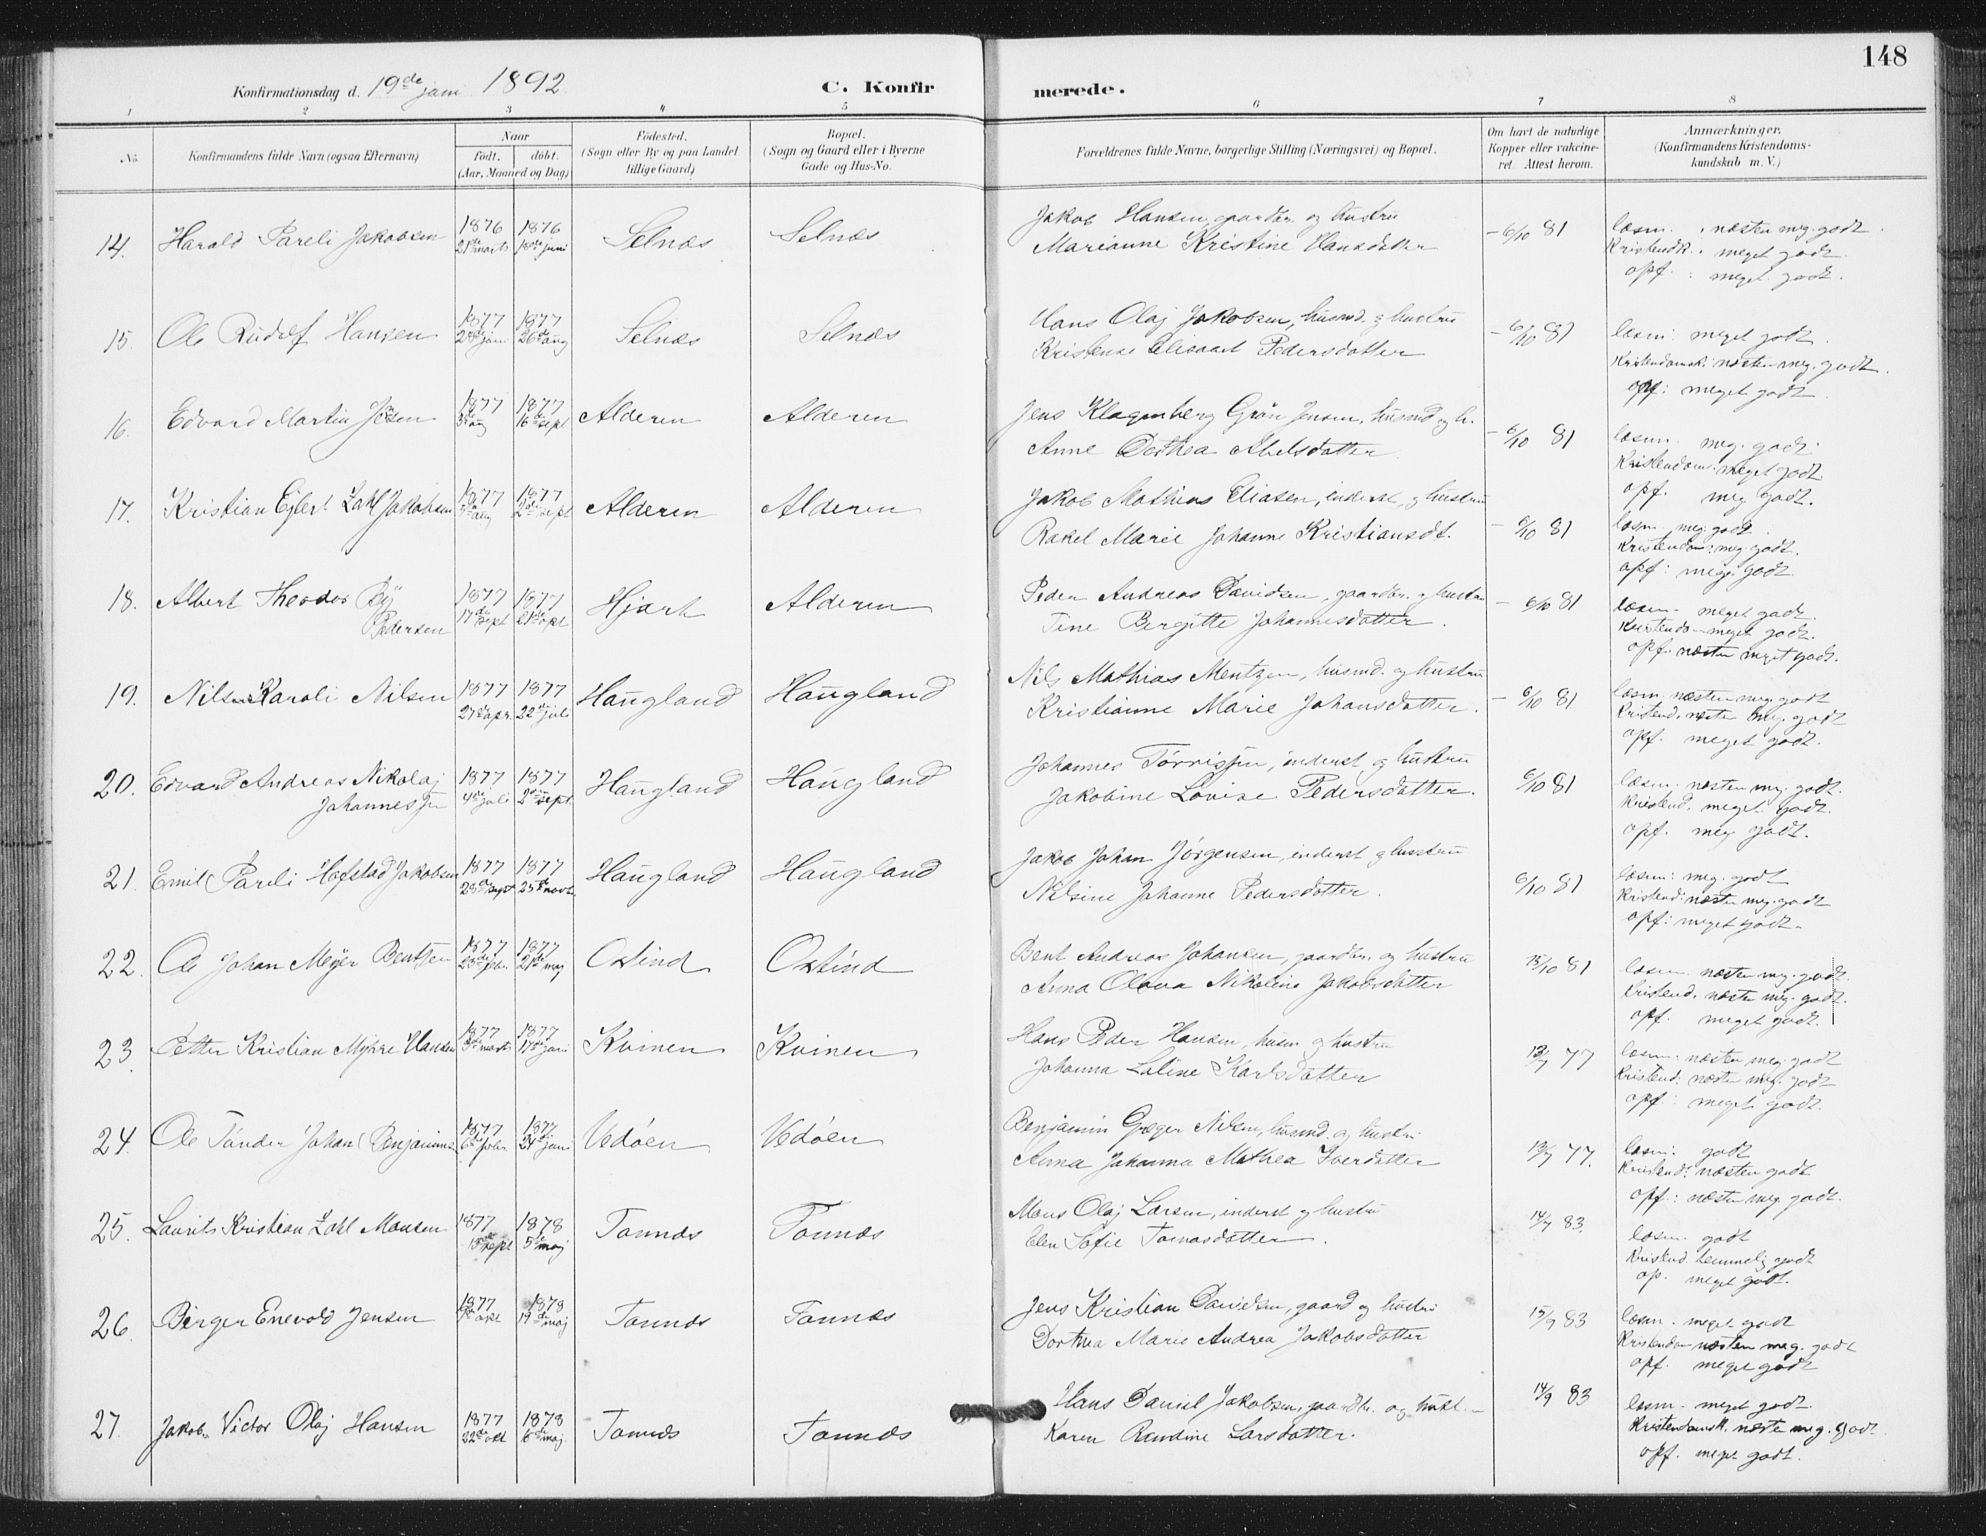 148
Konfirmationsdag d. 19de juni 1892.
C. Konfirmerede.
1 2 3 4 5 6 7 8
No. Konfirmandens fulde Navn (ogsaa Efternavn) Naar født. døbt. (Aar, Maaned og Dag) Fødested. (Sogn eller By og paa Landet tillige Gaard) Bopæl. (Sogn og Gaard eller i Byerne Gade og Hus-No. Forældrenes fulde Navne, borgerlige Stilling (Næringsvei) og Bopæl. Om havt de naturlige Kopper eller vakcineret. Attest herom. Anmærkninger. (Konfirmandens Kristendomskundskab m. V.)
14. Harald Pareli Jakobsen 1876 21de marts 1876 18de juni Selnæs Selnæs
Jakob Hansen, gaardbr. og hustru
Marianne Kristine Hansdatter - 6/10 81
læsn. næsten meg. godt.
Kristendk. meget godt.
opf. : meget godt.
15. Ole Rudolf Hansen 1877 1877 26de aug Selnæs Selnæs
Hans Olaj Jakobsen, husmd. og hustru
Pedersdatter - 6/10 81
læsn: meget godt.
Kristendomsk: næsten meg. godt.
opf: meget godt.
16. Edvard Martin Jensen 1877 aug 1877 16de sept Alderen Alderen
Jens Grøn Jensen, husmd og h.
Anne Dorthea Abelsdatter. - 6/10 81
læsn. meg. godt.
Kristendom: meget godt
opf. meg godt.
17. Kristian Ejlert Zahl Jakobsen 1877 aug 1877 2de sept Alderen Alderen
Jakob Mathias Eliasen, inderst og hustru
Rakel Marie Johanne Kristiansdt. - 6/10 81
læsn. meg. godt.
Kristendom: meg. godt.
opf: meg. godt.
18. Albert Theodor Pedersen 1877 17de sept 1877 Hjart Alderen
Peder Andreas Davidsen, gaardbr. og hustru
Tine Bergitte Johannesdatter. - 6/10 81
læsn. meget godt.
Kristendo- meget godt.
opf. næsten meget godt.
19. Nils Karoli Nilsen 1877 27de apr. 1877 22de juli Haugland Haugland
Nils Mathias Mentzen, husmd. og hustru
Kristianne Marie Johansdatter. - 6/10 81
læsn. næsten meg. godt
Kristend. næsten meg. godt
opf. meget godt.
20. Edvard Andreas Nikolaj Johannessen 1877 4de juli 1877 2den sept. Haugland Haugland
Johannes Torrissen, inderst og hustru
Jakobine Lovise Pedersdatter. 6/10 81
læsn. næsten meg. godt.
Kristend. meget godt.
opf. meg godt.
21. Emil Pareli Hofstad Jakobsen 1877 28de sept 1877 25de novb Haugland Haugland
Jakob Johan Jörgensen, inderst og hustru
Nilsine Johanne Pedersdatter. 6/10 81
læsn: meg. godt
Kristend: næsten meg. godt
opf: meget godt.
22. Ole Johan Meÿer Bentsen 1877 febr. 1877 21de maj Oxtind Oxtind
Bent Andreas Johansen, gaardbr. og hustru
Anna Olava Nikoline Jakobsdatter 15/10 81
læsn. næsten meg. godt.
Kristend. næsten meg. godt.
opf. meget godt.
23. Petter Kristian Myhre Hansen 1877 marts 1877 17de juni Kvinen Kvinen
Hans Peder Hansen, husm og hustru
Johanna Laline Karlsdatter 13/7 77
læsn. næsten meg. godt
Kristend: næsten meg. godt
opf. meget godt.
24. Ole Tønder Johan Benjamins. 1877 6de febr. 1877 juni Vedøen Vedøen
Benjamin Greger Nilsen, husmd. og hustru
Anna Johanna Mathea Iverdatter 13/7 77.
læsn: godt
Kristend: næsten godt
opf: næsten meg. godt.
25. Laurits Kristian Zahl Monsen 1877 sept 1878 5te maj Tonnes Tonnes
Mons Olaj Larsen, inderst og hustru
Elen Sofie Tomasdatter. 14/9 83.
læsn. godt
Kristend. temmelig godt
op. meget godt.
26. Birger Enevold Jensen 1877 okt 1878 19de maj Tonnes Tonnes
Jens Kristian Davidsen, gaard og hustru
Dorthea Marie Andrea Jakobsdatter 15/9 83
læsn. meget godt
Kristendom næsten meg. godt
opf. meget godt
27. Jakob Victor Olaj Hansen 1877 22de okt 1878 maj. Tonnes Tonnes
Hans Daniel Jakobsen, gaardbr. og hust.
Karen Randine Larsdatter. 14/9 83
læsn. meget godt.
Kristendomsk. næsten meg. godt.
opf. meget godt.